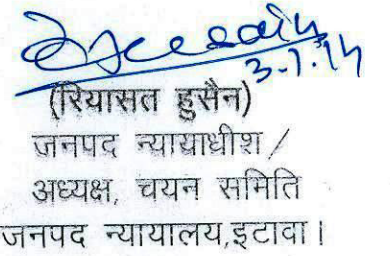 3.1.14
(रियासत हुसैन)
जनपद न्यायाधीश /
अध्यक्ष, चयन समिति
जनपद न्यायालय,इटावा।